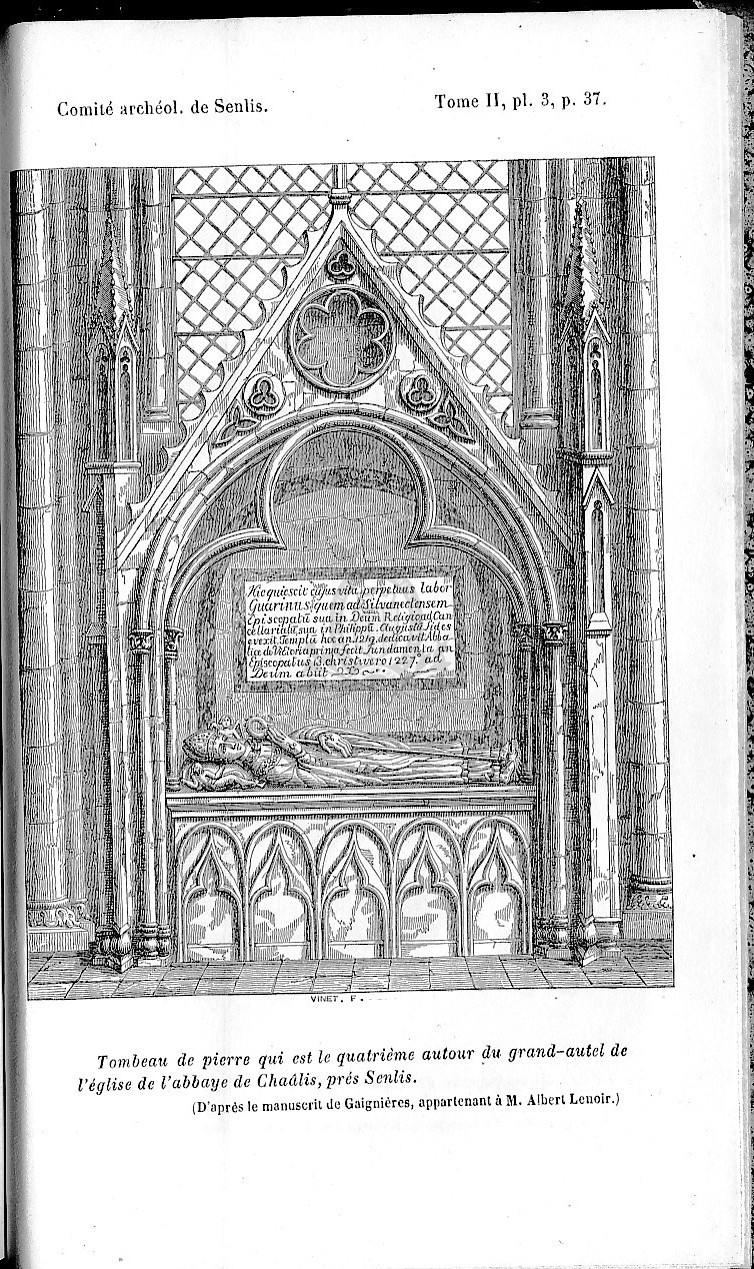 Comité archéol. de Senlis.
Tome II, pl. 3, p. 37.
Hic quiescit cujus vita perpetuus labor
Guarinus, quem ad Silvanectensem
Episcopatū sua in Deum Religio ad Can
cellariatū sua in Philippū Augustū fides
evexit. Templū hoc an. 1219. dedicavit. Abba
tiæ de Victoria prima fecit fundamenta an
Episcopatus 13. christi vero 1227. ad
Deum abiit
VINET. F.
Tombeau de pierre qui est le quatrième autour du grand-autel de
l'église de l'abbaye de Chaâlis, près Senlis.
(D'après le manuscrit de Gaignières, appartenant à M. Albert Lenoir.)